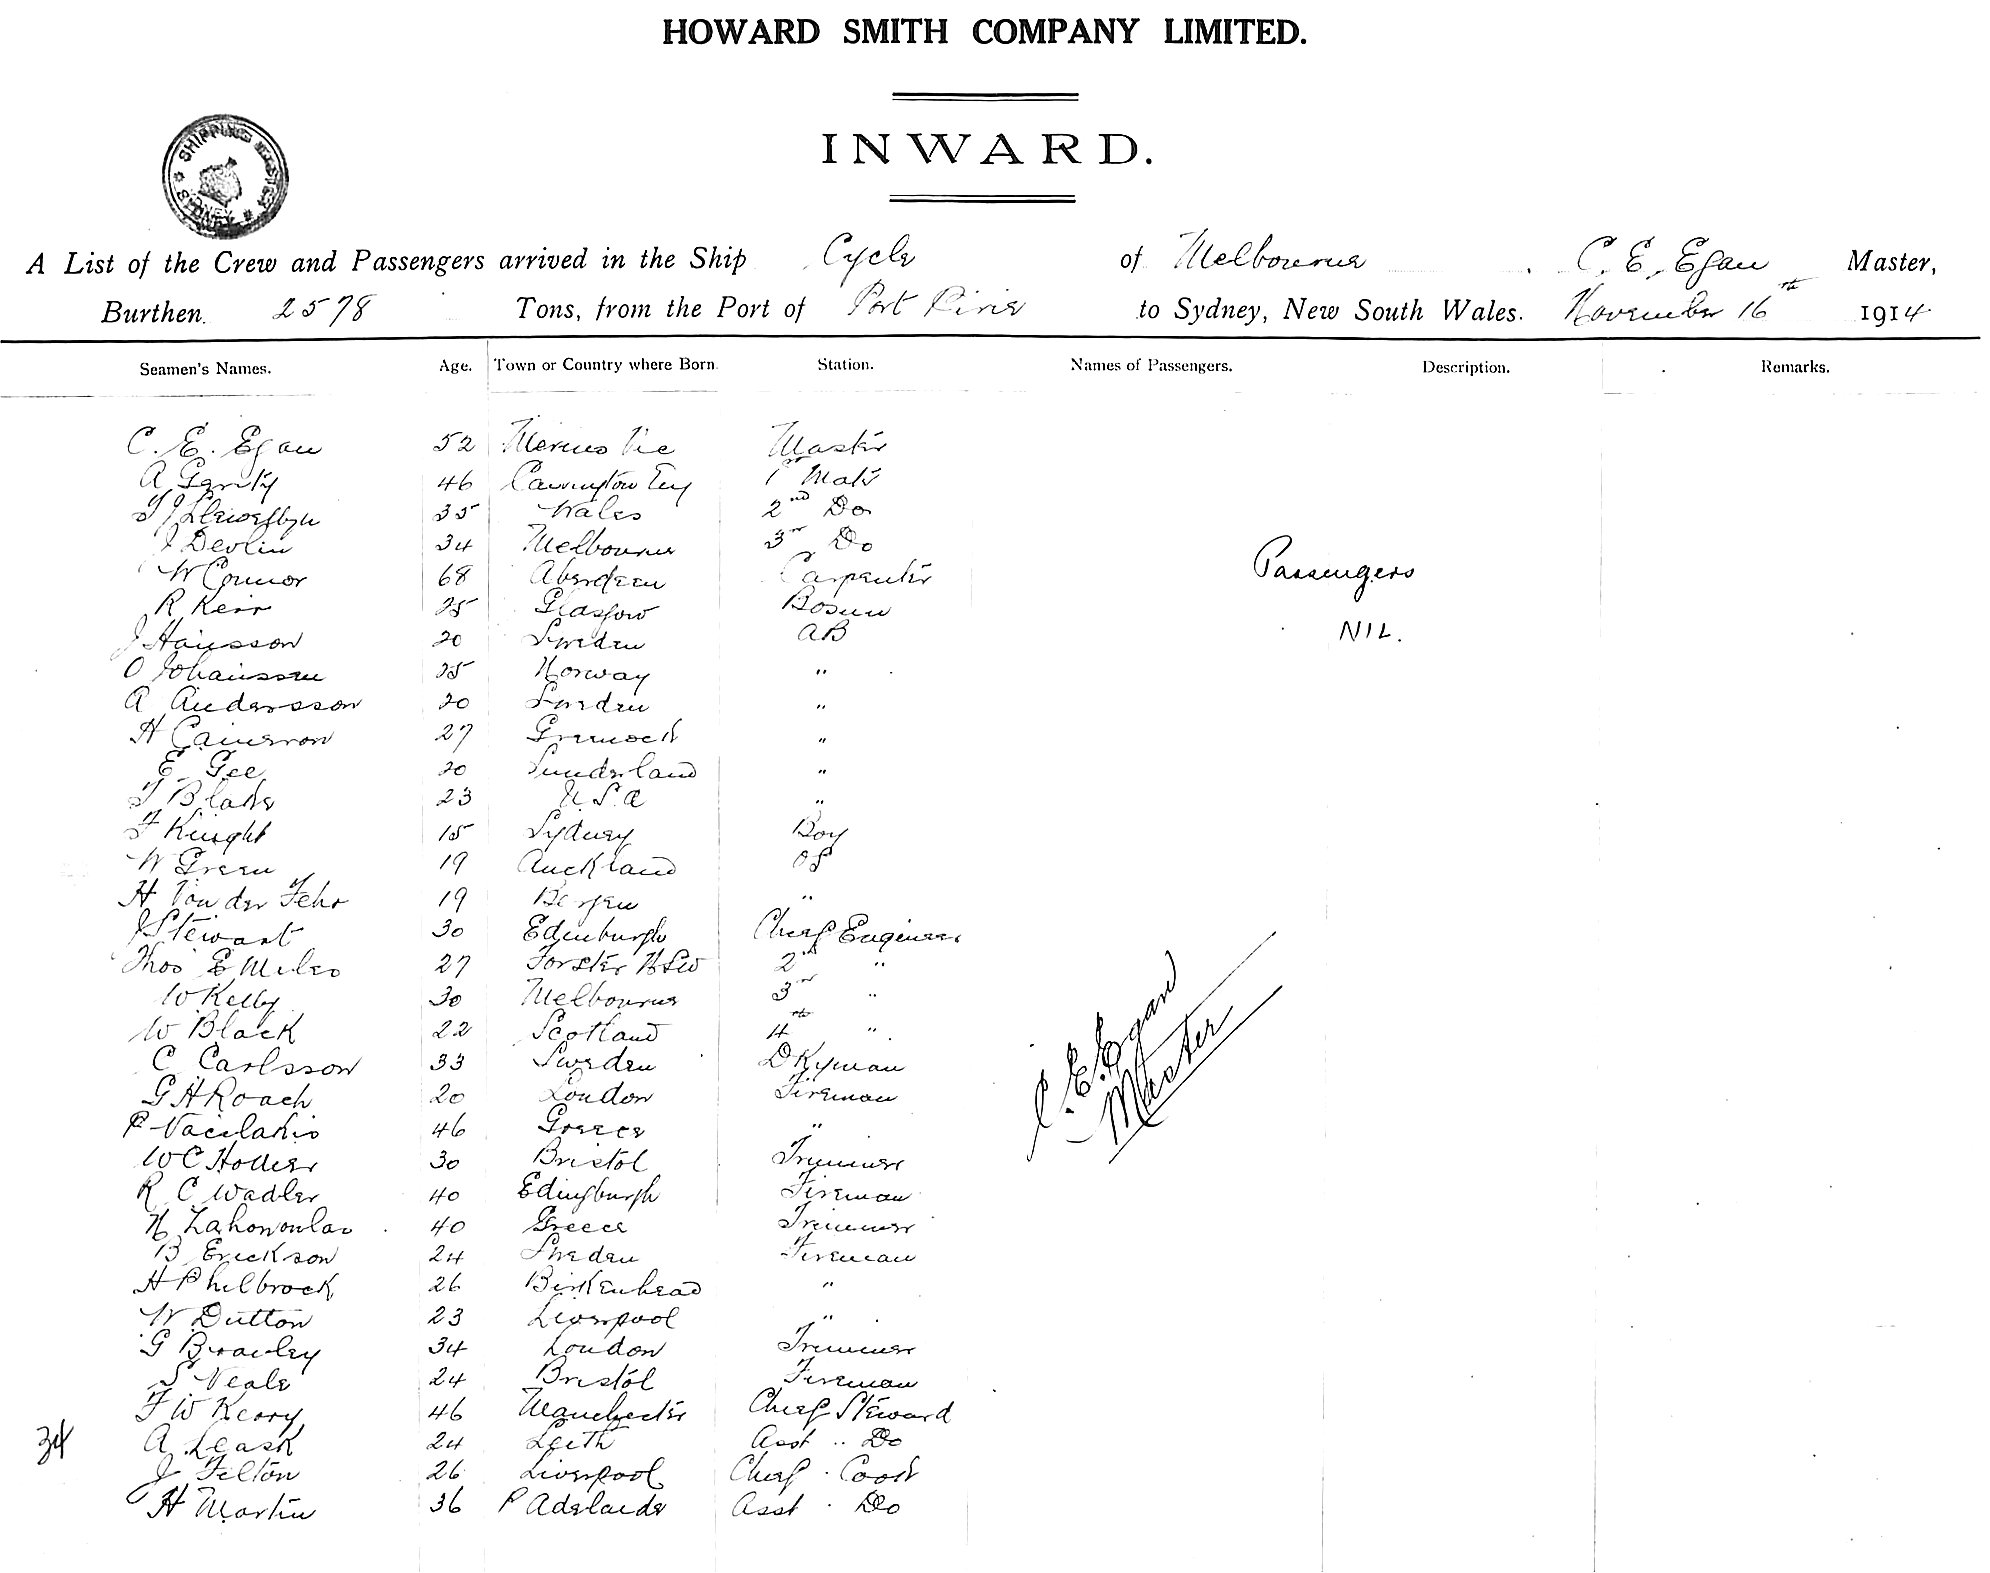 HOWARD SMITH COMPANY LIMITED.
INWARD.
SHIPPING MASTER SYDNEY
A List of the Crew and Passengers arrived in the Ship Cycle of Melbourne C. E. Egan Master,
Burthen. 2578 Tons, from the Port of Port Pirie to Sydney, New South Wales. November 16th 1914
Seamen's Names. Age. Town or Country where Born. Station. Names of Passengers. Description. Remarks.
C. E. Egan 52 Vic Master
A Garity 46 Carrington 1st Mate
T J Llewellyn 35 Wales 2nd Do
J Devlin 34 Melbourne 3rd Do
W Connor 68 Aberdeen Carpenter Passengers
R Kerr 25 Glasgow Bosun
J Hansson 20 Sweden AB NIL.
O Johanssen 25 Norway "
A Andersson 20 Sweden "
H Cameron 27 Greenock "
E Gee 20 Sunderland "
T Blake 23 U.S.A "
F Knight 15 Sydney Boy
W Green 19 Auckland OS
H Von der Fehr 19 Bergen "
J Stewart 30 Edinburgh Chief Engineer
Thos E Miles 27 Forster NSW 2nd "
W Kelly 30 Melbourne 3rd "
W Black 22 Scotland 4th "
C Carlsson 33 Sweden DKyman
G H Roach 20 London Fireman
P Vacilakis 46 Greece "
C. E. Egan
Master
W C Hollier 30 Bristol Trimmer
R C Wadler 40 Edingburgh Fireman
N 40 Greece Trimmer
B Erickson 24 Sweden Fireman
H Philbrock 26 Birkenhead "
W Dutton 23 Liverpool "
G Brawley 34 London Trimmer
S Veale 24 Bristol Fireman
F W Kerry 46 Manchester Chief Steward
34 A Leask 24 Leith Asst " Do
J Felton 26 Liverpool Chief Cook
H Martin 36 P Adelaide Asst Do